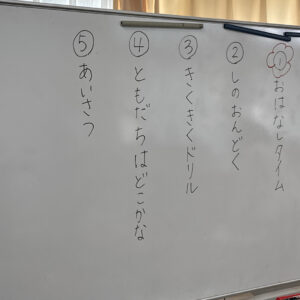 ①おはなしタイム
②しのおんどく
③きくきくドリル
④ともだちはどこかな
⑤あいさつ